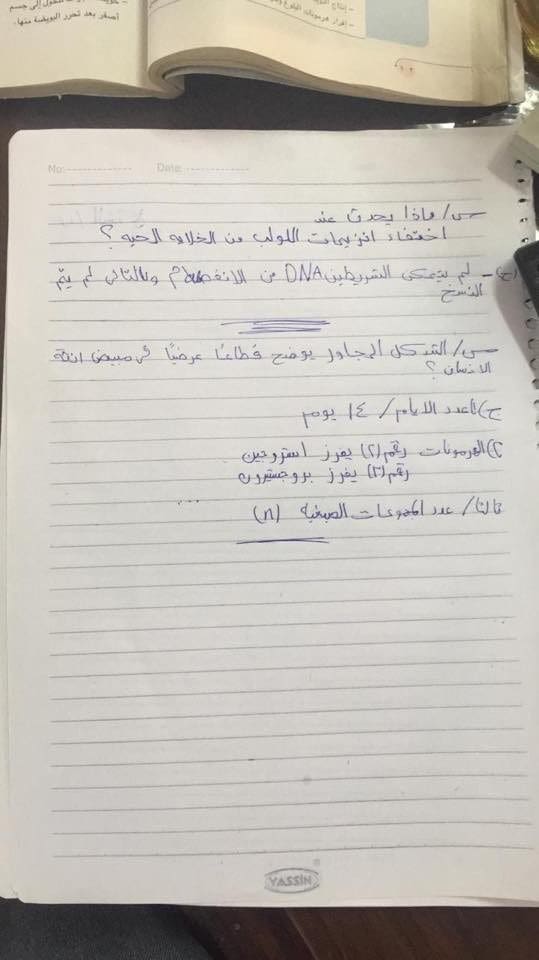 تتحول إلى جسم
أصفر بعد تحرر البويضة منها.
- إنتاج
- إفراز هرمونات البلوغ
No:
Date:
س/ ماذا يحدث عند
اختفاء انزيمات اللولب من الخلايا الحية ؟
(ج) - لم يتمكن الشريطين DNA من الانفصام وبالتالى لم يتم
النسخ
س/ الشكل المجاور يوضح قطاعًا عرضيًا فى مبيض انثى
الانسان ؟
ج) ١) عدد الايام / ١٤ يوم
٢) الهرمونات رقم (٢) يفرز استروجين
رقم (٣) يفرز بروجستيرون
ثالثا / عدد المجموعات الصبغية (n)
YASSIN